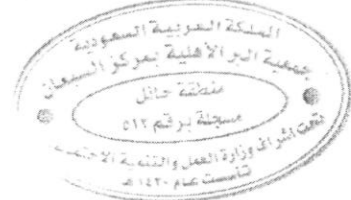 المملكة العربية السعودية
جمعية البر الأهلية بمركز السبعان
منطقة حائل
مسجلة برقم ٥١٢
تحت اشراف وزارة العمل والتنمية الاجتماعية
تأسست عام ١٤٢٠ هـ